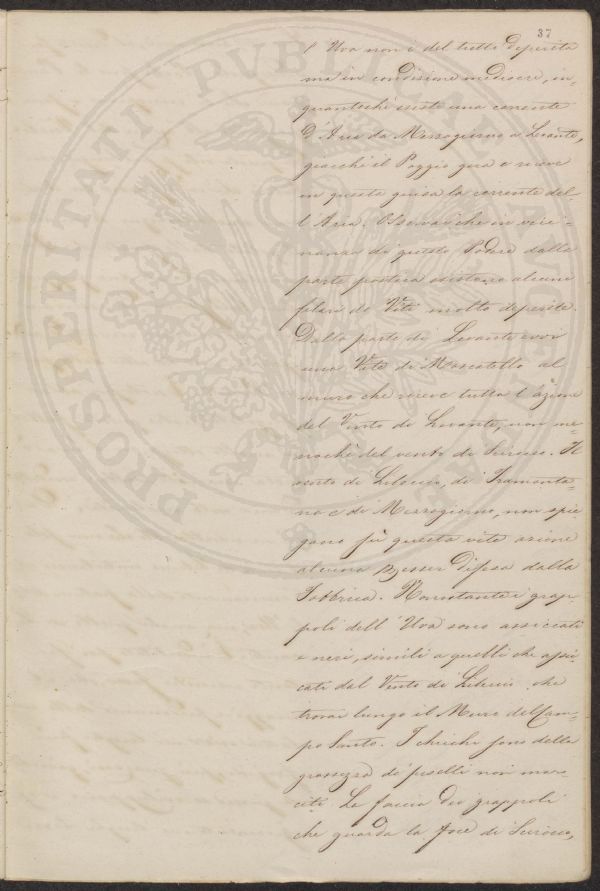 37
l'Uva non è del tutto deperita
ma in condizione mediocre, in-
quantochè esiste una corrente
d'Aria da Mezzogiorno a Levante,
giacchè il Poggio gira e riceve
in questa guisa la corrente del-
l'Aria. Osservai che in vici-
nanza di questo Podere dalla
parte postica esistono alcune
filari di Viti molto deperite.
Dalla parte di Levante evvi
una Vite di Moscatello al
muro che riceve tutta l'azione
del Vento di Levante, non me-
nochè del vento di Scirocco. Il
vento di Libeccio, di Tramonta-
na e di Mezzogiorno, non spie-
gano su questa vite azione
alcuna per esser difesa dalla
Fabbrica. Nonostante i grap-
poli dell'Uva sono assiccati
e neri, simili a quelli che assic-
cati dal Vento di Libeccio che
trovai lungo il Muro del Cam-
po Santo. I chicchi sono della
grossezza di piselli non mar-
citi. La faccia dei grappoli
che guarda la foce di Scirocco,
PROSPERITATI PVBLICAE AVCENDAE